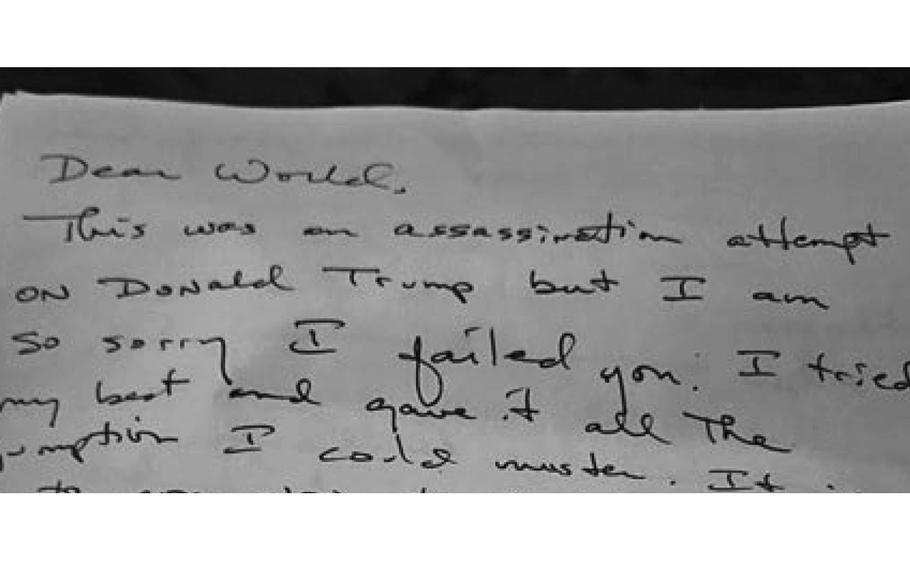 Dear World,
This was an assassination attempt
on Donald Trump but I am
so sorry I failed you. I tried
my best and gave it all the
gumption I could muster. It
to